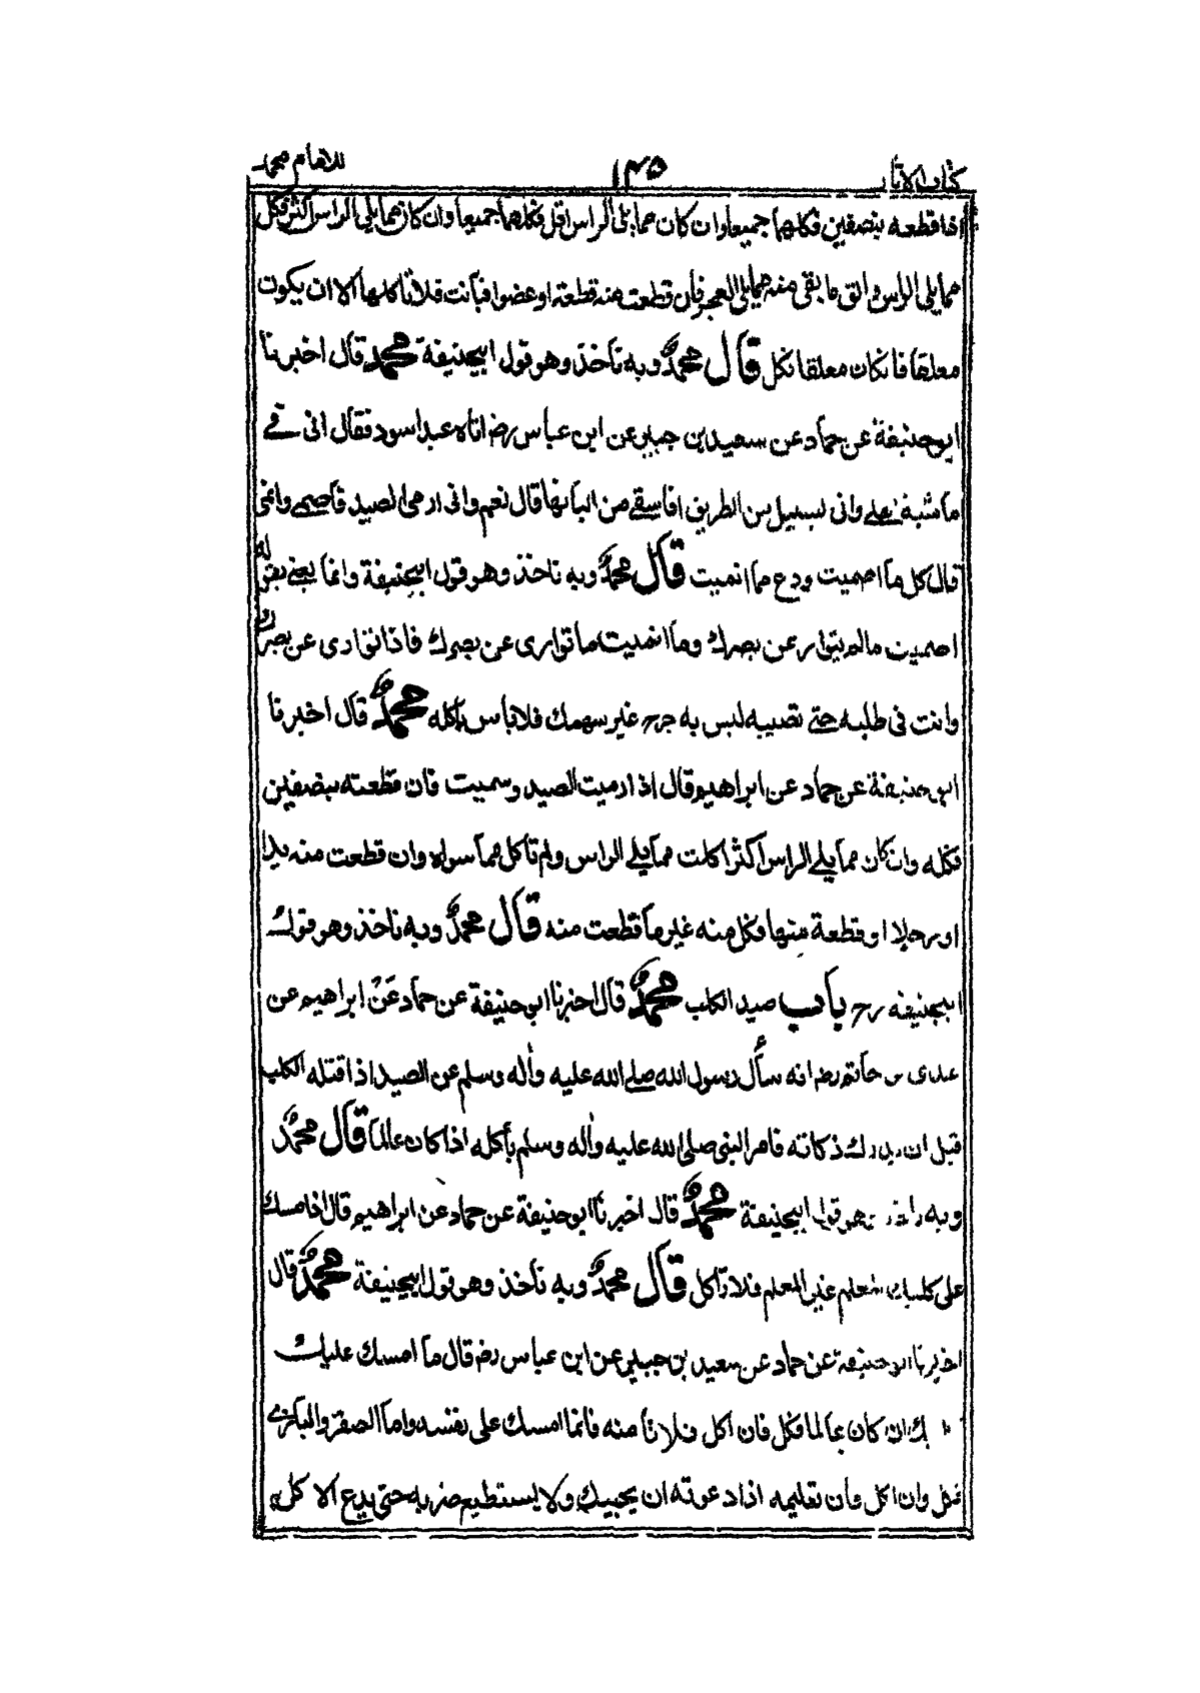 كتاب الاثار ١٤٥ للامام محمد
اذا قطعه بنصفين فكلهما جميعا وان كان مما يلى الراس اقل فكلهما جميعا وان كان مما يلى الراس اكثر فكل
مما يلى الراس والق ما بقى منه مما يلى العجز فان قطعت منه قطعة او عضوا فبانت فلا تاكلها الا ان يكون
معلقا فان كان معلقا فكل قال محمد وبه ناخذ وهو قول ابيحنيفة محمد قال اخبرنا
ابوحنيفة عن حماد عن سعيد بن جبير عن ابن عباس رضـ اتاه عبد اسود فقال انى فے
ماشية اهلے وانى لسبيل من الطريق افاسقے من البانها قال نعم وانى ارمى الصيد فاصمے وانمى
قال كل ما اصميت ودع ما انميت قال محمد وبه ناخذ وهو قول ابيحنيفة وانما يعنے بقوله
اصميت مالم يتوار عن بصرك وما انميت ما توارى عن بصرك فاذا توارى عن بصرك
وانت فى طلبه حتے تصيبه ليس به جرح غير سهمك فلا باس باكله محمد قال اخبرنا
ابوحنيفة عن حماد عن ابراهيم قال اذا رميت الصيد وسميت فان قطعته بنصفين
فكله وان كان مما يلے الراس اكثر اكلت مما يلے الراس ولم تاكل مما سواه وان قطعت منه يدا
او رجلا او قطعة منها فكل منه غير ما قطعت منه قال محمد وبه ناخذ وهو قول
ابيحنيفه رح باب صيد الكلب محمد قال اخبرنا ابوحنيفة عن حماد عن ابراهيم عن
عدى بن حاتم رضـ انه سأل رسول الله صلے الله عليه واٰله وسلم عن الصيد اذا قتله الكلب
قبل ان يدرك ذكاته فامر النبى صلى الله عليه واٰله وسلم بأكله اذا كان عالما قال محمد
وبه ناخذ وهو قول ابيحنيفة محمد قال اخبرنا ابوحنيفة عن حماد عن ابراهيم قال اذا امسك
على كلبك المعلم غير المعلم فلا تاكل قال محمد وبه ناخذ وهو قول ابيحنيفة محمد قال
اخبرنا ابوحنيفة عن حماد عن سعيد بن جبير عن ابن عباس رضـ قال ما امسك عليك
كلبك ان كان عالما فكل فان اكل فلا تأ منه فانما امسك على نفسه واما الصقر والبازے
فكل وان اكل فان تعليمه اذا دعوته ان يجيبك ولا يستطيع ضربه حتى يدع الاكل